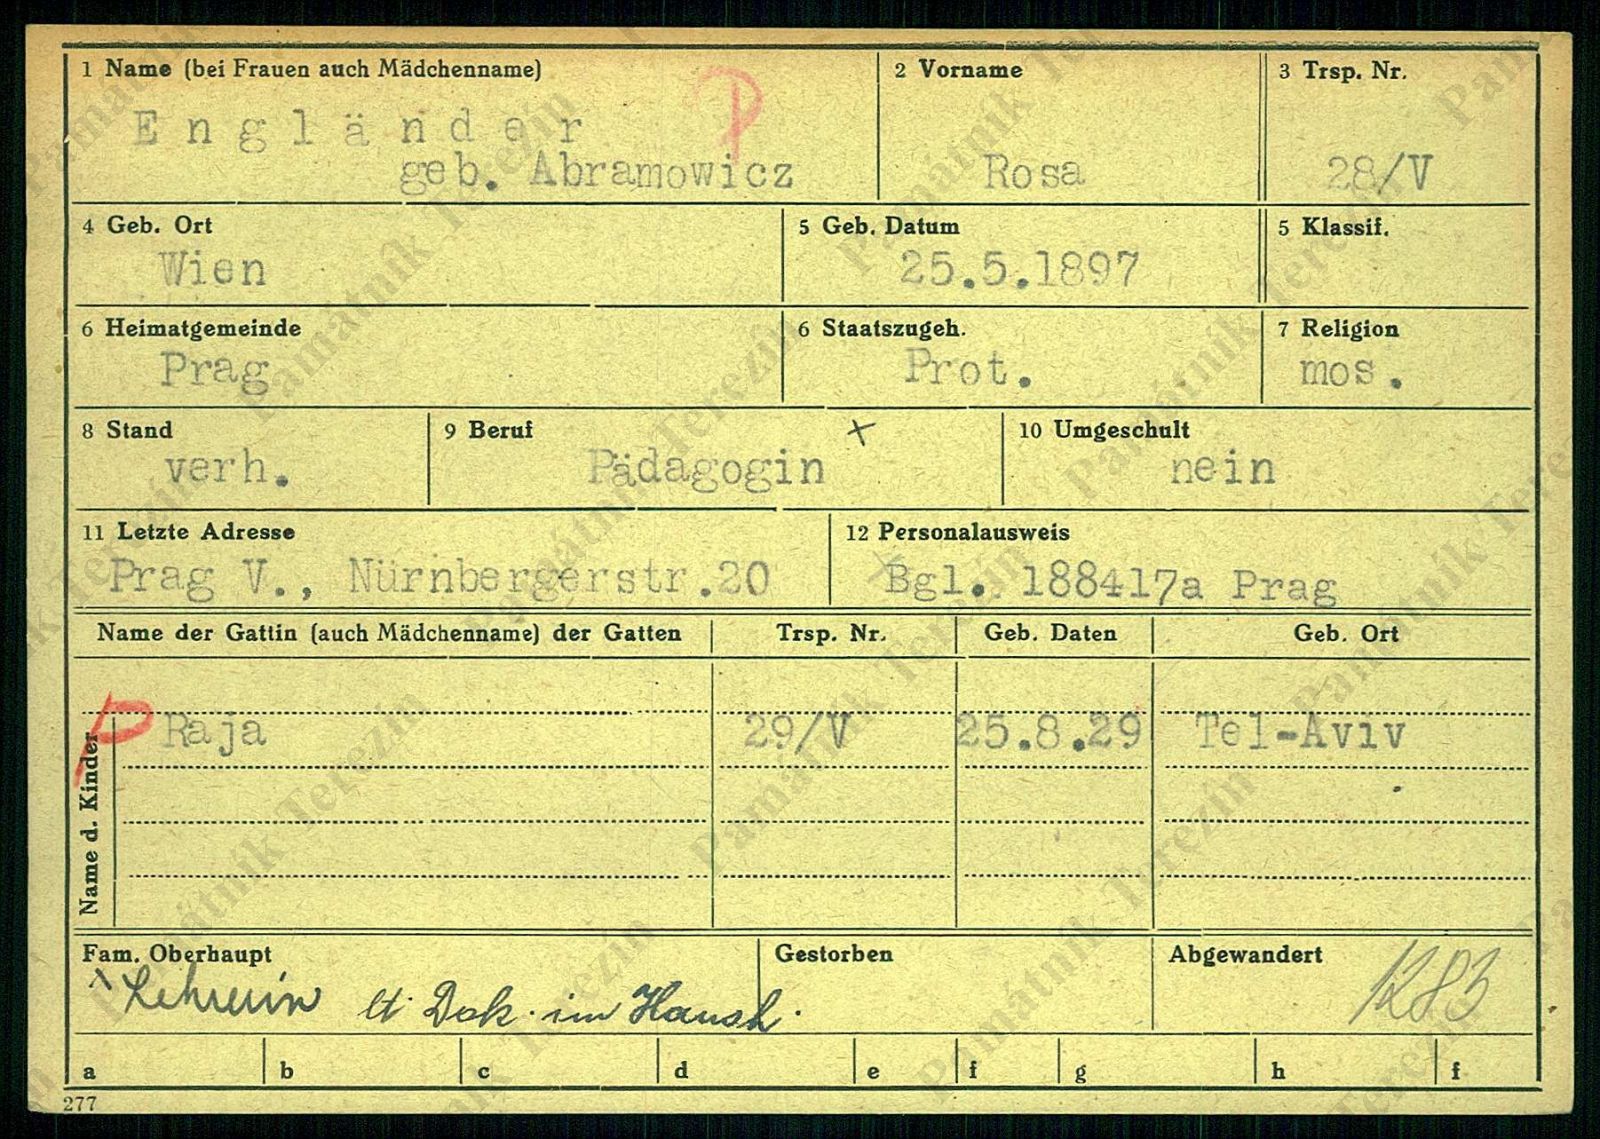 1 Name (bei Frauen auch Mädchenname)
Engländer
geb. Abramowicz
P
2 Vorname
Rosa
3 Trsp. Nr.
28/V
4 Geb. Ort
Wien
5 Geb. Datum
25.5.1897
5 Klassif.
6 Heimatgemeinde
Prag
6 Staatszugeh.
Prot.
7 Religion
mos.
8 Stand
verh.
9 Beruf
x
Pädagogin
10 Umgeschult
nein
11 Letzte Adresse
Prag V., Nürnbergerstr.20
12 Personalausweis
Bgl. 188417a Prag
Name der Gattin (auch Mädchenname) der Gatten Trsp. Nr. Geb. Daten Geb. Ort
Name d. Kinder
P
Raja 29/V 25.8.29 Tel-Aviv
Fam. Oberhaupt
x Lehrerin lt. Dok. im Haush.
Gestorben
Abgewandert
1283
a b c d e f g h f
277
Památník Terezín